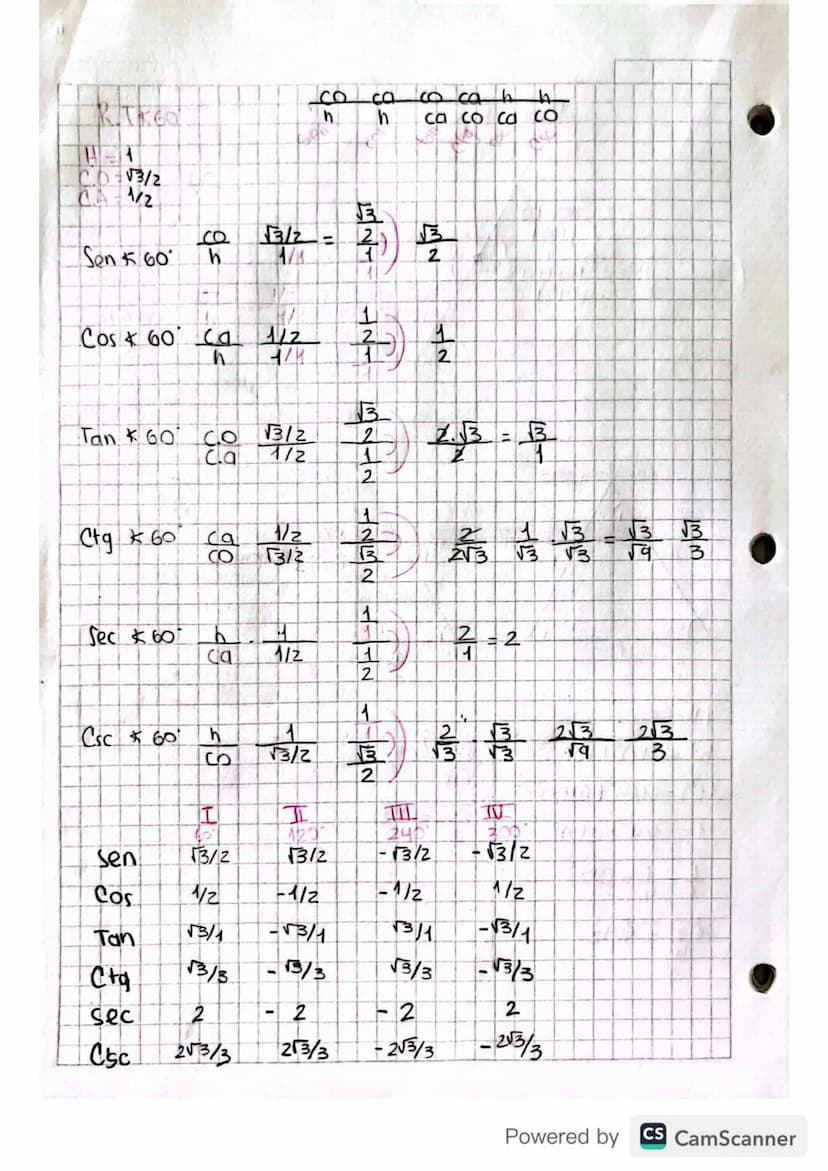 co/h ca/h co/ca ca/co h/ca h/co
R.T∢60°
H = 1
C.O = √3/2
C.A = 1/2
Sen ∢ 60° co/h (√3/2)/(1/1) = (√3/2)/(1/1) √3/2
Cos ∢ 60° ca/h (1/2)/(1/1) (1/2)/(1/1) 1/2
Tan ∢ 60° c.o/c.a (√3/2)/(1/2) (√3/2)/(1/2) 2.√3/2 = √3/1
Ctg ∢ 60° ca/co (1/2)/(√3/2) (1/2)/(√3/2) 2/2√3 1/√3 . √3/√3 = √3/√9 √3/3
Sec ∢ 60° h/ca . 1/(1/2) (1/1)/(1/2) 2/1 = 2
Csc ∢ 60° h/co 1/(√3/2) (1/1)/(√3/2) 2/√3 . √3/√3 2√3/√9 2√3/3
I II III IV
60° 120° 240° 300°
Sen √3/2 √3/2 -√3/2 -√3/2
Cos 1/2 -1/2 -1/2 1/2
Tan √3/1 -√3/1 √3/1 -√3/1
Ctg √3/3 -√3/3 √3/3 -√3/3
Sec 2 -2 -2 2
Csc 2√3/3 2√3/3 -2√3/3 -2√3/3
Powered by CS CamScanner